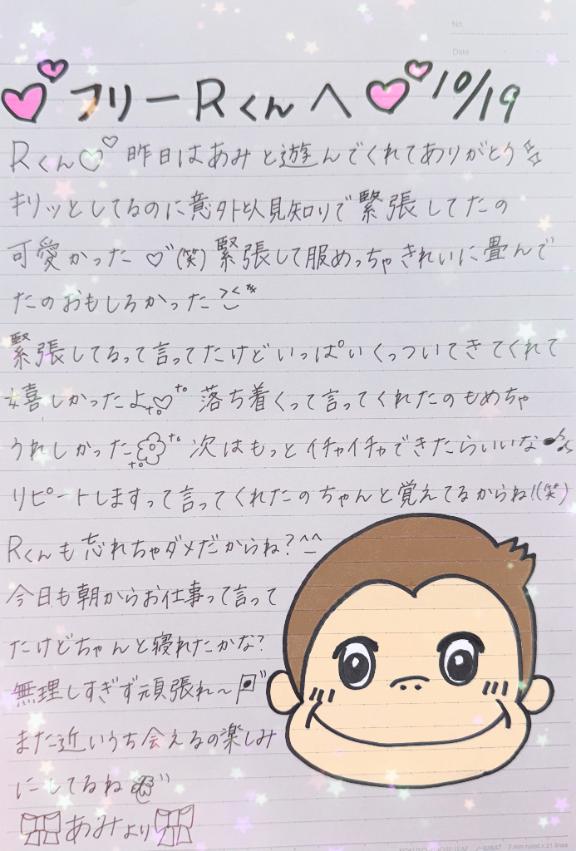 No.
Date
フリーRくんへ 10/19
Rくん♡ 昨日はあみと遊んでくれてありがとう
キリッとしてるのに意外と人見知りで緊張してたの
可愛かった♡(笑) 緊張して服めっちゃきれいに畳んで
たのおもしろかった
緊張してるって言ってたけどいっぱいくっついてきてくれて
嬉しかったよ♡ 落ち着くって言ってくれたのもめちゃ
うれしかった 次はもっとイチャイチャできたらいいな
リピートしますって言ってくれたのちゃんと覚えてるからね!!(笑)
Rくんも忘れちゃダメだからね?^^
今日も朝からお仕事って言って
たけどちゃんと寝れたかな?
無理しすぎず頑張れ〜
また近いうち会えるの楽しみ
にしてるね
あみより